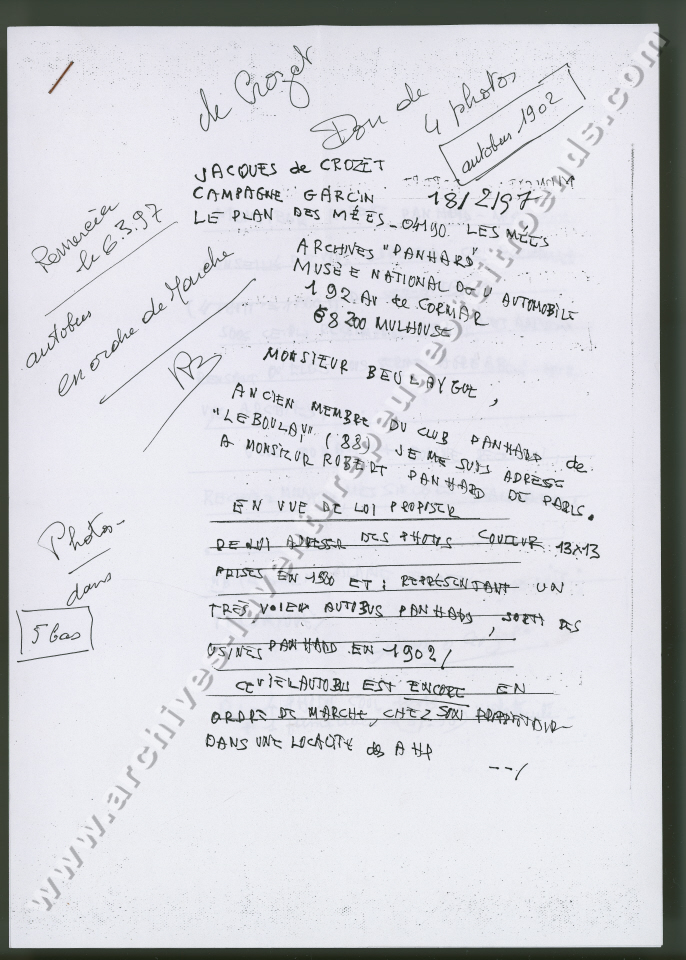 de Crozet
Don de
4 photos
autobus 1902
JACQUES de CROZET
CAMPAGNE GARCIN
18/2/97
LE PLAN DES MÉES - 04190 LES MÉES
ARCHIVES "PANHARD"
MUSÉE NATIONAL DE L' AUTOMOBILE
192 AV de COLMAR
68200 MULHOUSE
Remercié
le 6.3.97
autobus
en ordre de Marche
MONSIEUR BEULAYGUE,
ANCIEN MEMBRE DU CLUB PANHARD de
"LE BOULAY" (88) JE ME SUIS ADRESSÉ
A MONSIEUR ROBERT PANHARD DE PARIS.
EN VUE DE LUI PROPOSER
DE LUI ADRESSER DES PHOTOS COULEUR 13X13
PRISES EN 1980 ET : REPRESENTANT UN
TRES VIEUX AUTOBUS PANHARD, SORTI DES
USINES PANHARD EN 1902/
CE VIEL AUTOBUS EST ENCORE EN
ORDRE DE MARCHE, CHEZ SON PROPRIETAIRE
DANS UNE LOCALITE des AHP
--/
Photos-
dans
5 bas
www.archives-laventurapeugeotcitroends.com